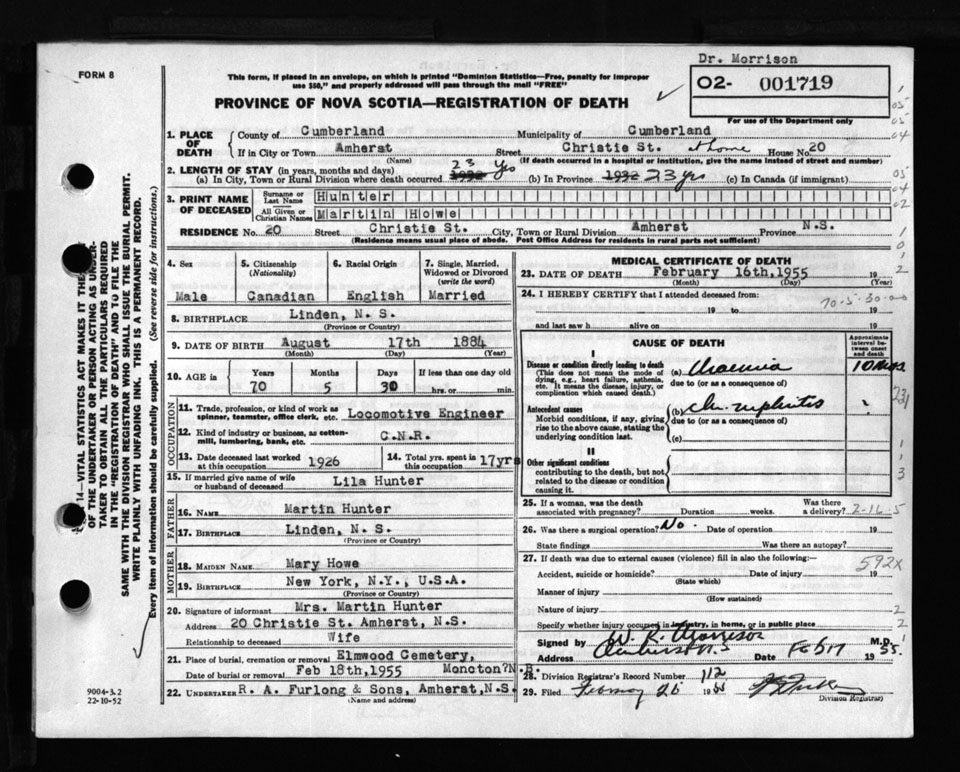 Dr. Morrison
FORM 8
02- 001719
For use of the Department only
This form, if placed in an envelope, on which is printed "Dominion Statistics—Free, penalty for improper
use $50," and properly addressed will pass through the mail "FREE"
PROVINCE OF NOVA SCOTIA—REGISTRATION OF DEATH
1. PLACE OF DEATH { County of Cumberland Municipality of Cumberland
If in City or Town Amherst Street Christie St. at home House No. 20
(Name) (If death occurred in a hospital or institution, give the name instead of street and number)
2. LENGTH OF STAY (in years, months and days)
(a) In City, Town or Rural Division where death occurred 1932 23 yrs (b) In Province 1932 23 yrs (c) In Canada (if immigrant)
3. PRINT NAME OF DECEASED { Surname or Last Name Hunter
All Given or Christian Names Martin Howe
RESIDENCE No. 20 Street Christie St. City, Town or Rural Division Amherst Province N.S.
(Residence means usual place of abode. Post Office Address for residents in rural parts not sufficient)
4. Sex Male
5. Citizenship (Nationality) Canadian
6. Racial Origin English
7. Single, Married, Widowed or Divorced (write the word) Married
8. BIRTHPLACE Linden, N. S.
(Province or Country)
9. DATE OF BIRTH August 17th 1884
(Month) (Day) (Year)
10. AGE in Years 70 Months 5 Days 30 If less than one day old hrs. or min.
OCCUPATION
11. Trade, profession, or kind of work as spinner, teamster, office clerk, etc. Locomotive Engineer
12. Kind of industry or business, as cotton-mill, lumbering, bank, etc. C.N.R.
13. Date deceased last worked at this occupation 1926
14. Total yrs. spent in this occupation 17yrs
15. If married give name of wife or husband of deceased Lila Hunter
FATHER
16. NAME Martin Hunter
17. BIRTHPLACE Linden, N. S.
(Province or Country)
MOTHER
18. MAIDEN NAME Mary Howe
19. BIRTHPLACE New York, N.Y., U.S.A.
(Province or Country)
20. Signature of informant Mrs. Martin Hunter
Address 20 Christie St. Amherst, N.S.
Relationship to deceased Wife
21. Place of burial, cremation or removal Elmwood Cemetery,
Date of burial or removal Feb 18th, 1955 Moncton? N.B.
22. UNDERTAKER R. A. Furlong & Sons, Amherst, N.S.
(Name and address)
MEDICAL CERTIFICATE OF DEATH
23. DATE OF DEATH February 16th, 1955 19
(Month) (Day) (Year)
24. I HEREBY CERTIFY that I attended deceased from:
19 to 19
and last saw h alive on 19
70-5-30-00
CAUSE OF DEATH
Approximate interval between onset and death
I
Disease or condition directly leading to death
(This does not mean the mode of dying, e.g., heart failure, asthenia, etc. It means the disease, injury, or complication which caused death.)
(a) Uraemia
due to (or as a consequence of)
Antecedent causes
Morbid conditions, if any, giving rise to the above cause, stating the underlying condition last.
(b) Chr. nephritis
due to (or as a consequence of)
(c)
II
Other significant conditions
contributing to the death, but not related to the disease or condition causing it.
25. If a woman, was the death associated with pregnancy? Duration weeks. Was there a delivery?
2-16-5
26. Was there a surgical operation? No. Date of operation 19
State findings Was there an autopsy?
27. If death was due to external causes (violence) fill in also the following:
592X
Accident, suicide or homicide? Date of injury 19
(State which)
Manner of injury
(How sustained)
Nature of injury
Specify whether injury occurred in industry, in home, or in public place
Signed by W. R. Morrison M.D.
Address Amherst N.S Date Feb 17 1955.
28. Division Registrar's Record Number 112
29. Filed February 25 19
Division Registrar
14—VITAL STATISTICS ACT MAKES IT THE
OF THE UNDERTAKER OR PERSON ACTING AS UNDER-
TAKER TO OBTAIN ALL THE PARTICULARS REQUIRED
IN THE "REGISTRATION OF DEATH" AND TO FILE THE
SAME WITH THE DIVISION REGISTRAR WHO SHALL ISSUE THE BURIAL PERMIT.
WRITE PLAINLY WITH UNFADING INK. THIS IS A PERMANENT RECORD.
Every item of information should be carefully supplied. (See reverse side for instructions.)
9004-3.2
22-10-52